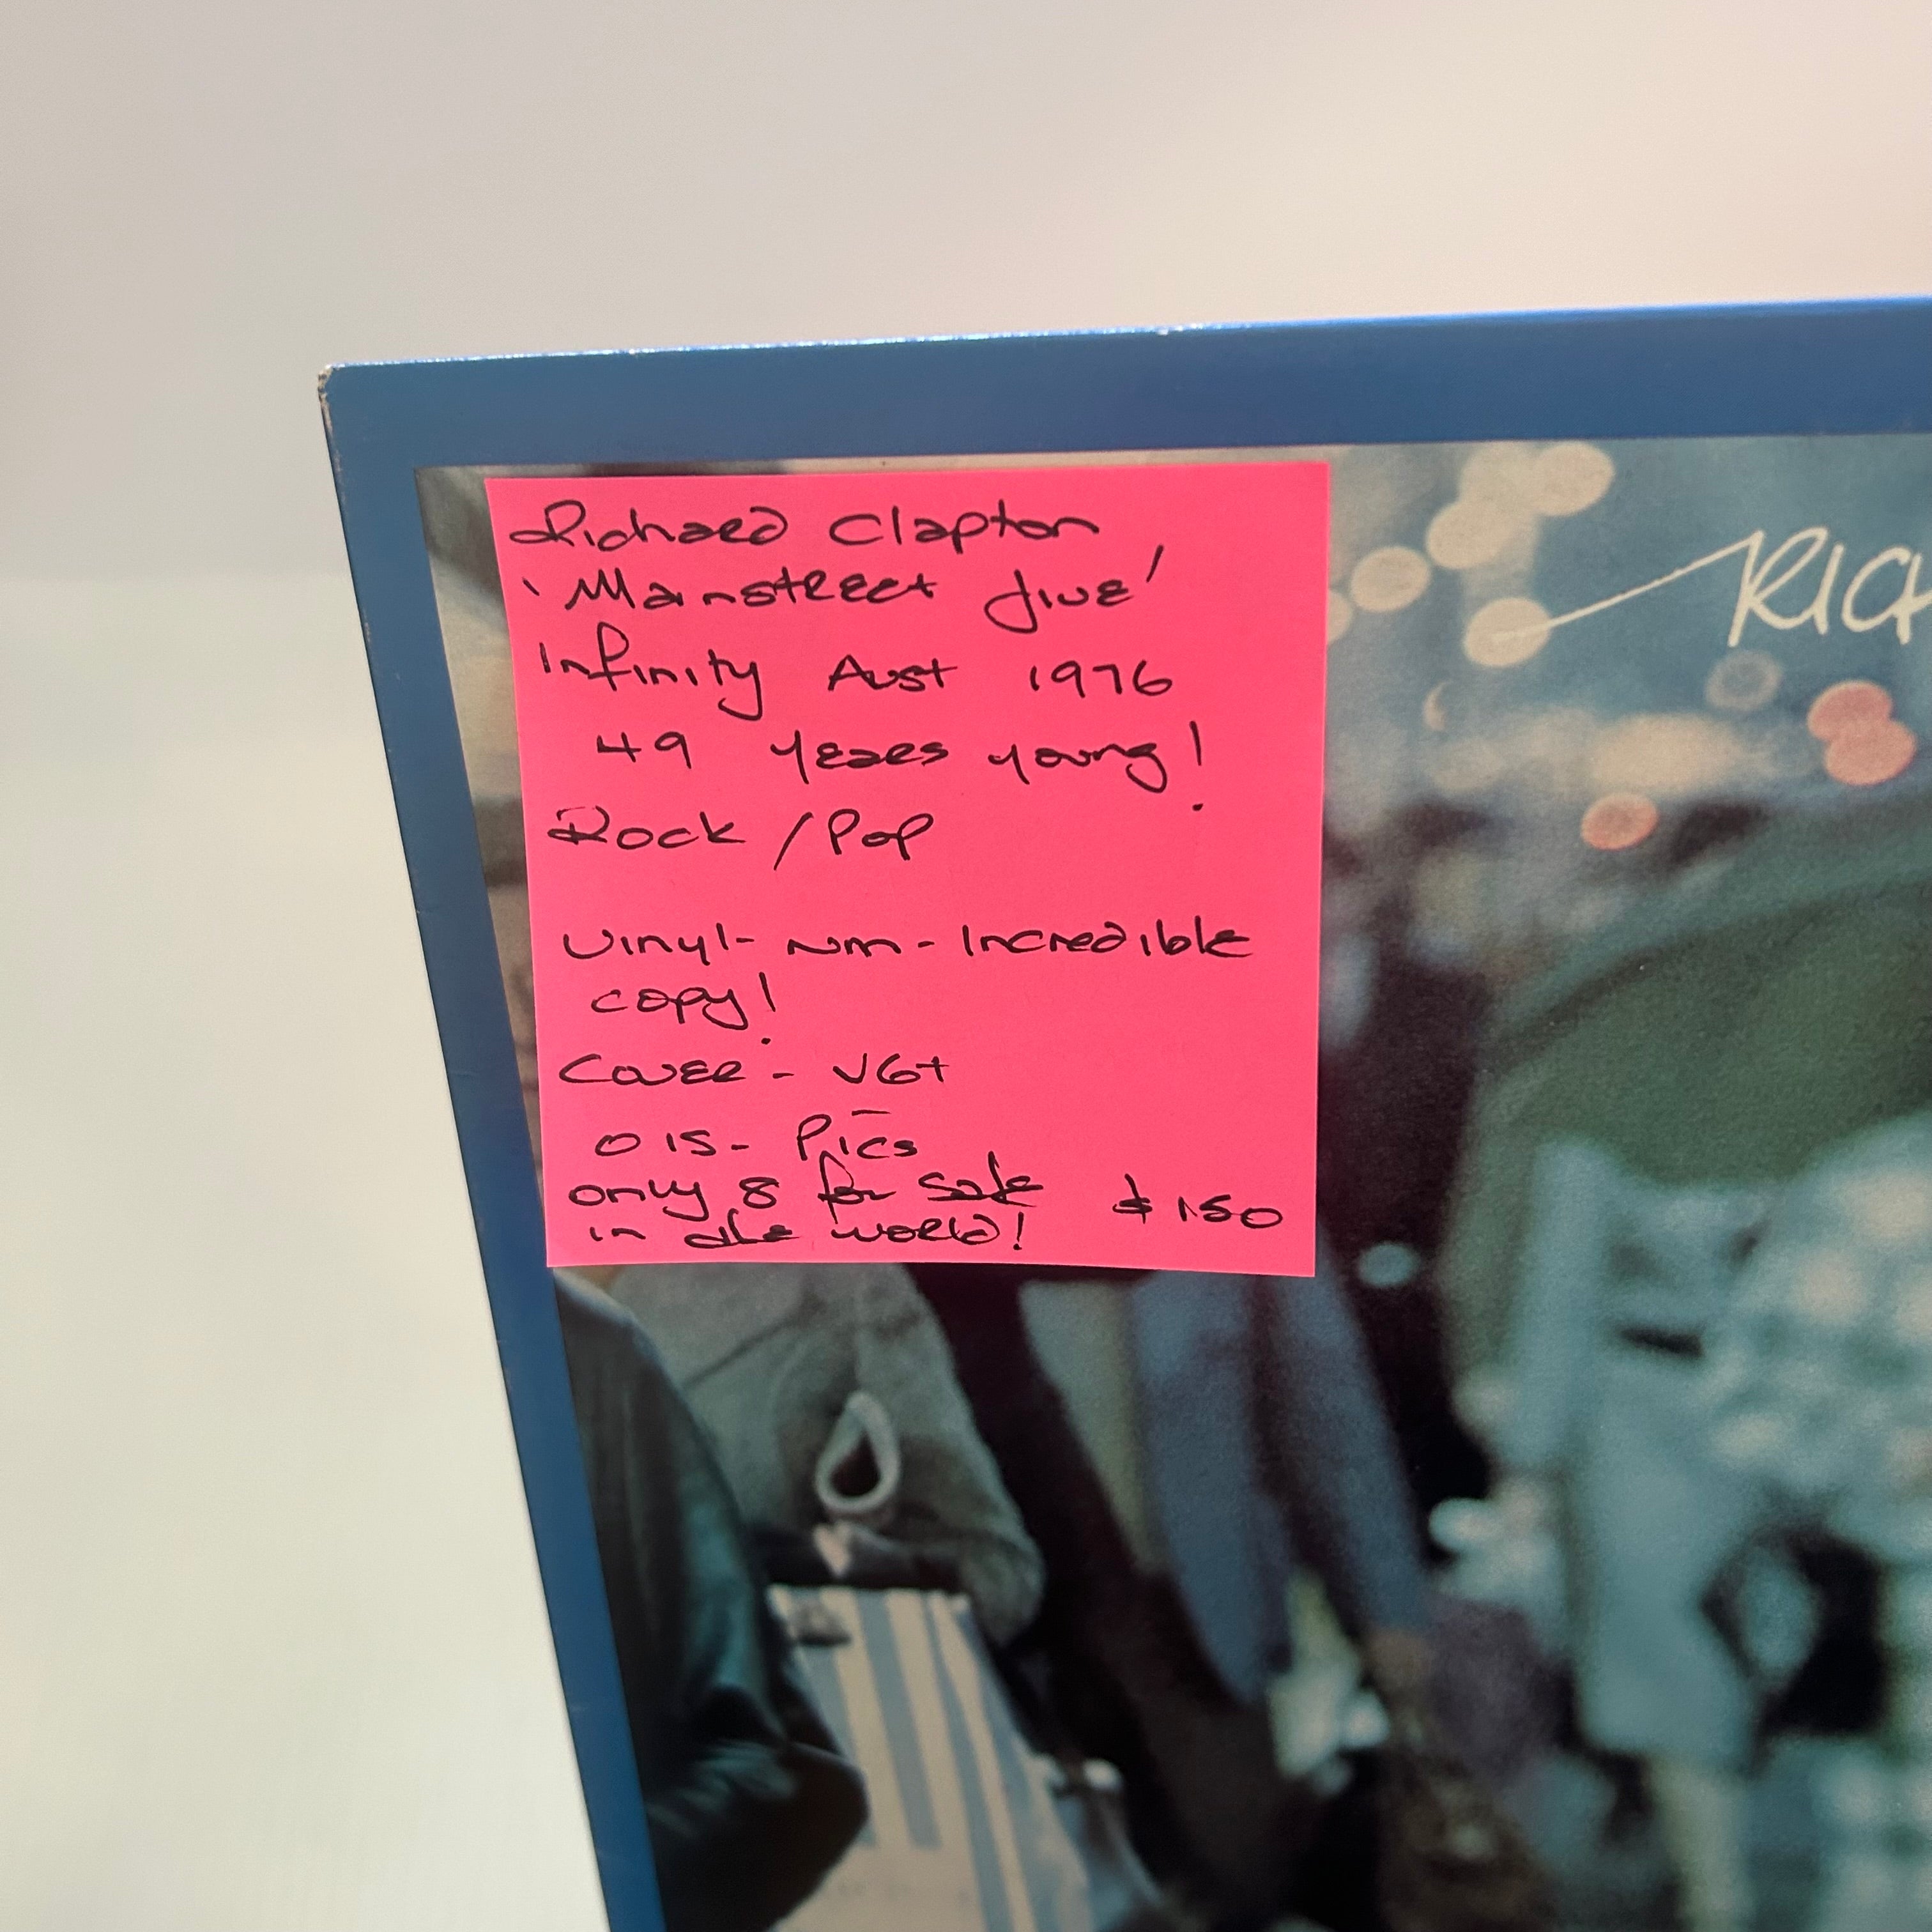 Richard Clapton
'Mainstreet Jive'
Infinity Aust 1976
49 years young!
Rock / Pop
Vinyl - NM - Incredible
copy!
Cover - VG+
OIS - Pics
only 8 for sale
in the world!
$150
RICH